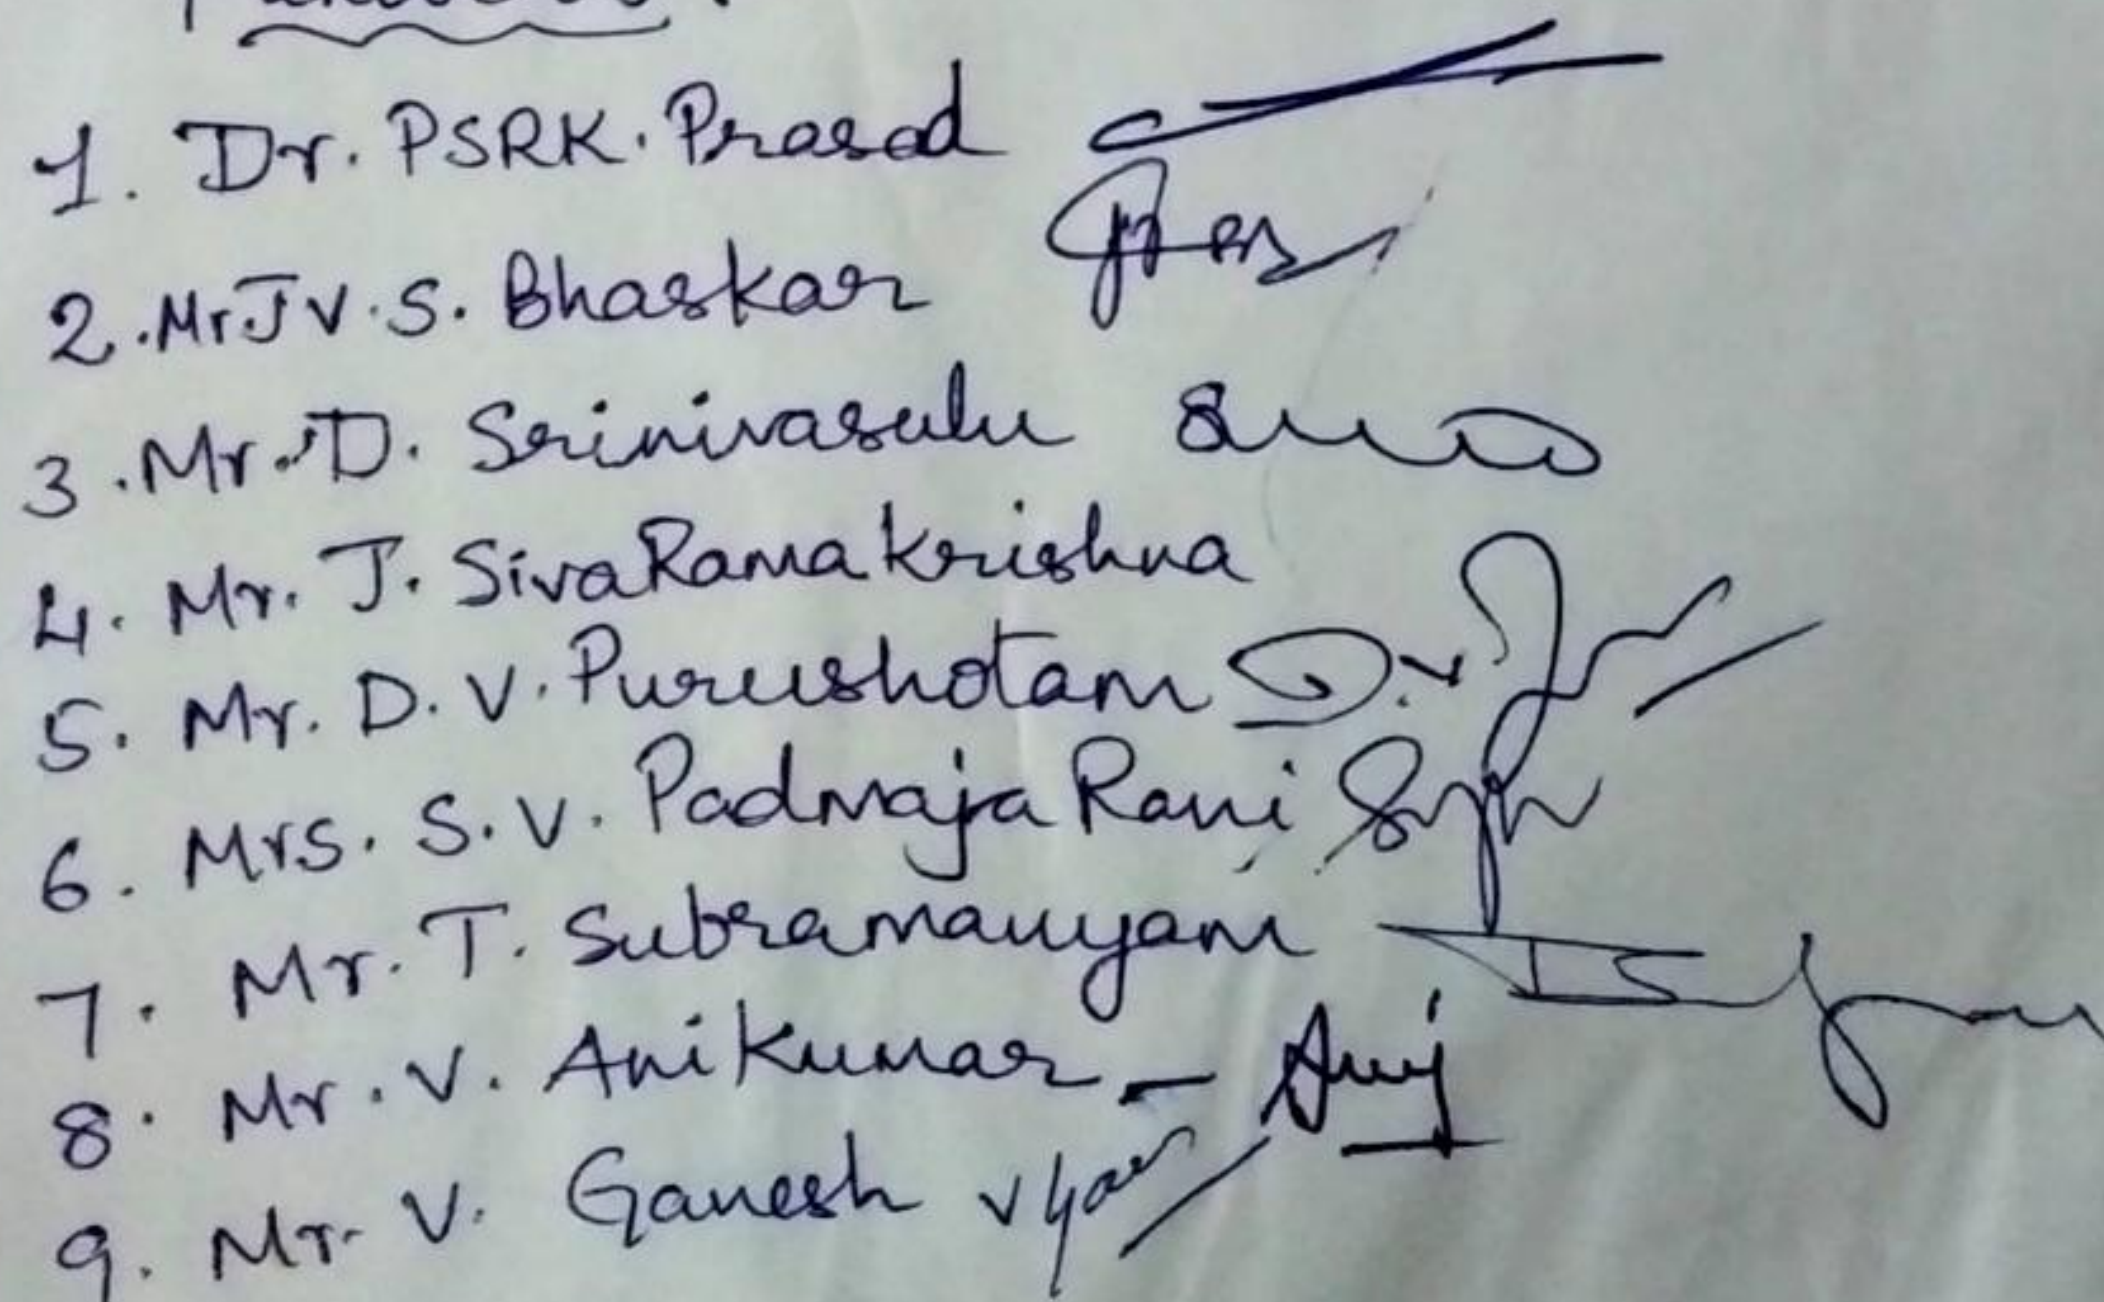 1. Dr. PSRK. Prasad
2. Mr J V. S. Bhaskar
3. Mr. D. Srinivasulu
4. Mr. J. Siva Rama Krishna
5. Mr. D. V. Purushotam D.V
6. Mrs. S. V. Padmaja Rani
7. Mr. T. Subramanyam
8. Mr. V. Ani Kumar -
9. Mr. V. Ganesh